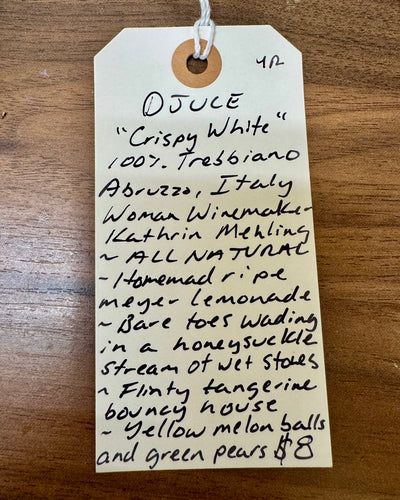 4R
DJUCE
"Crispy White"
100% Trebbiano
Abruzzo, Italy
Woman Winemaker
Kathrin Mehling
~ ALL NATURAL
~ Homemad ripe
meyer lemonade
~ Bare toes wading
in a honeysuckle
stream of wet stones
~ Flinty tangerine
bouncy house
~ Yellow melon balls
and green pears $8